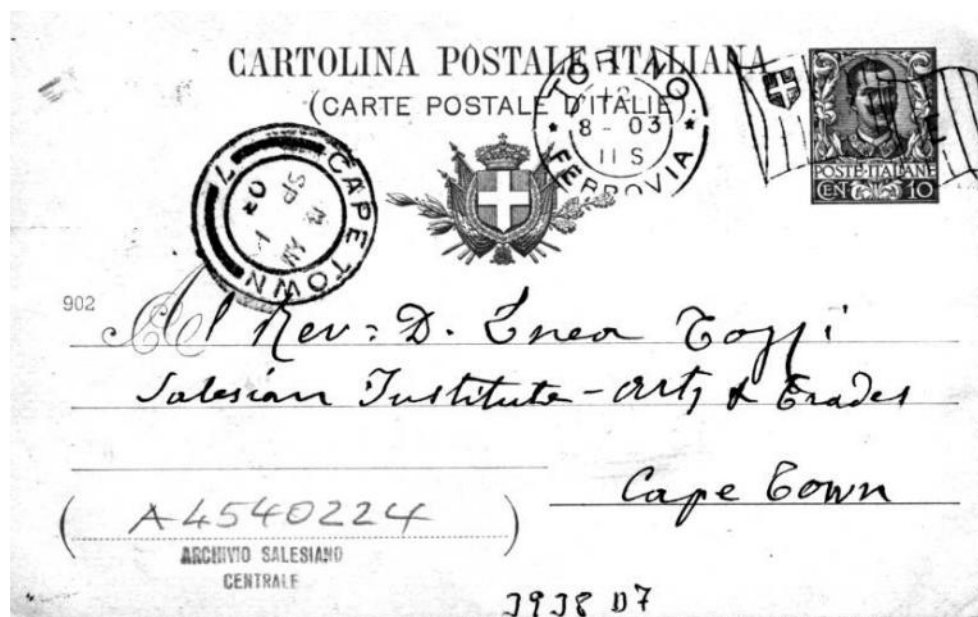 CARTOLINA POSTALE ITALIANA
(CARTE POSTALE D'ITALIE).
TORINO
8 - 03
11 S
FERROVIA
POSTE ITALIANE
CEN 10
CAPE TOWN
902
Al Rev: D. Enea Tozzi
Salesian Institute - Arts & Trades
Cape Town
(A4540224)
ARCHIVIO SALESIANO
CENTRALE
3938 D7